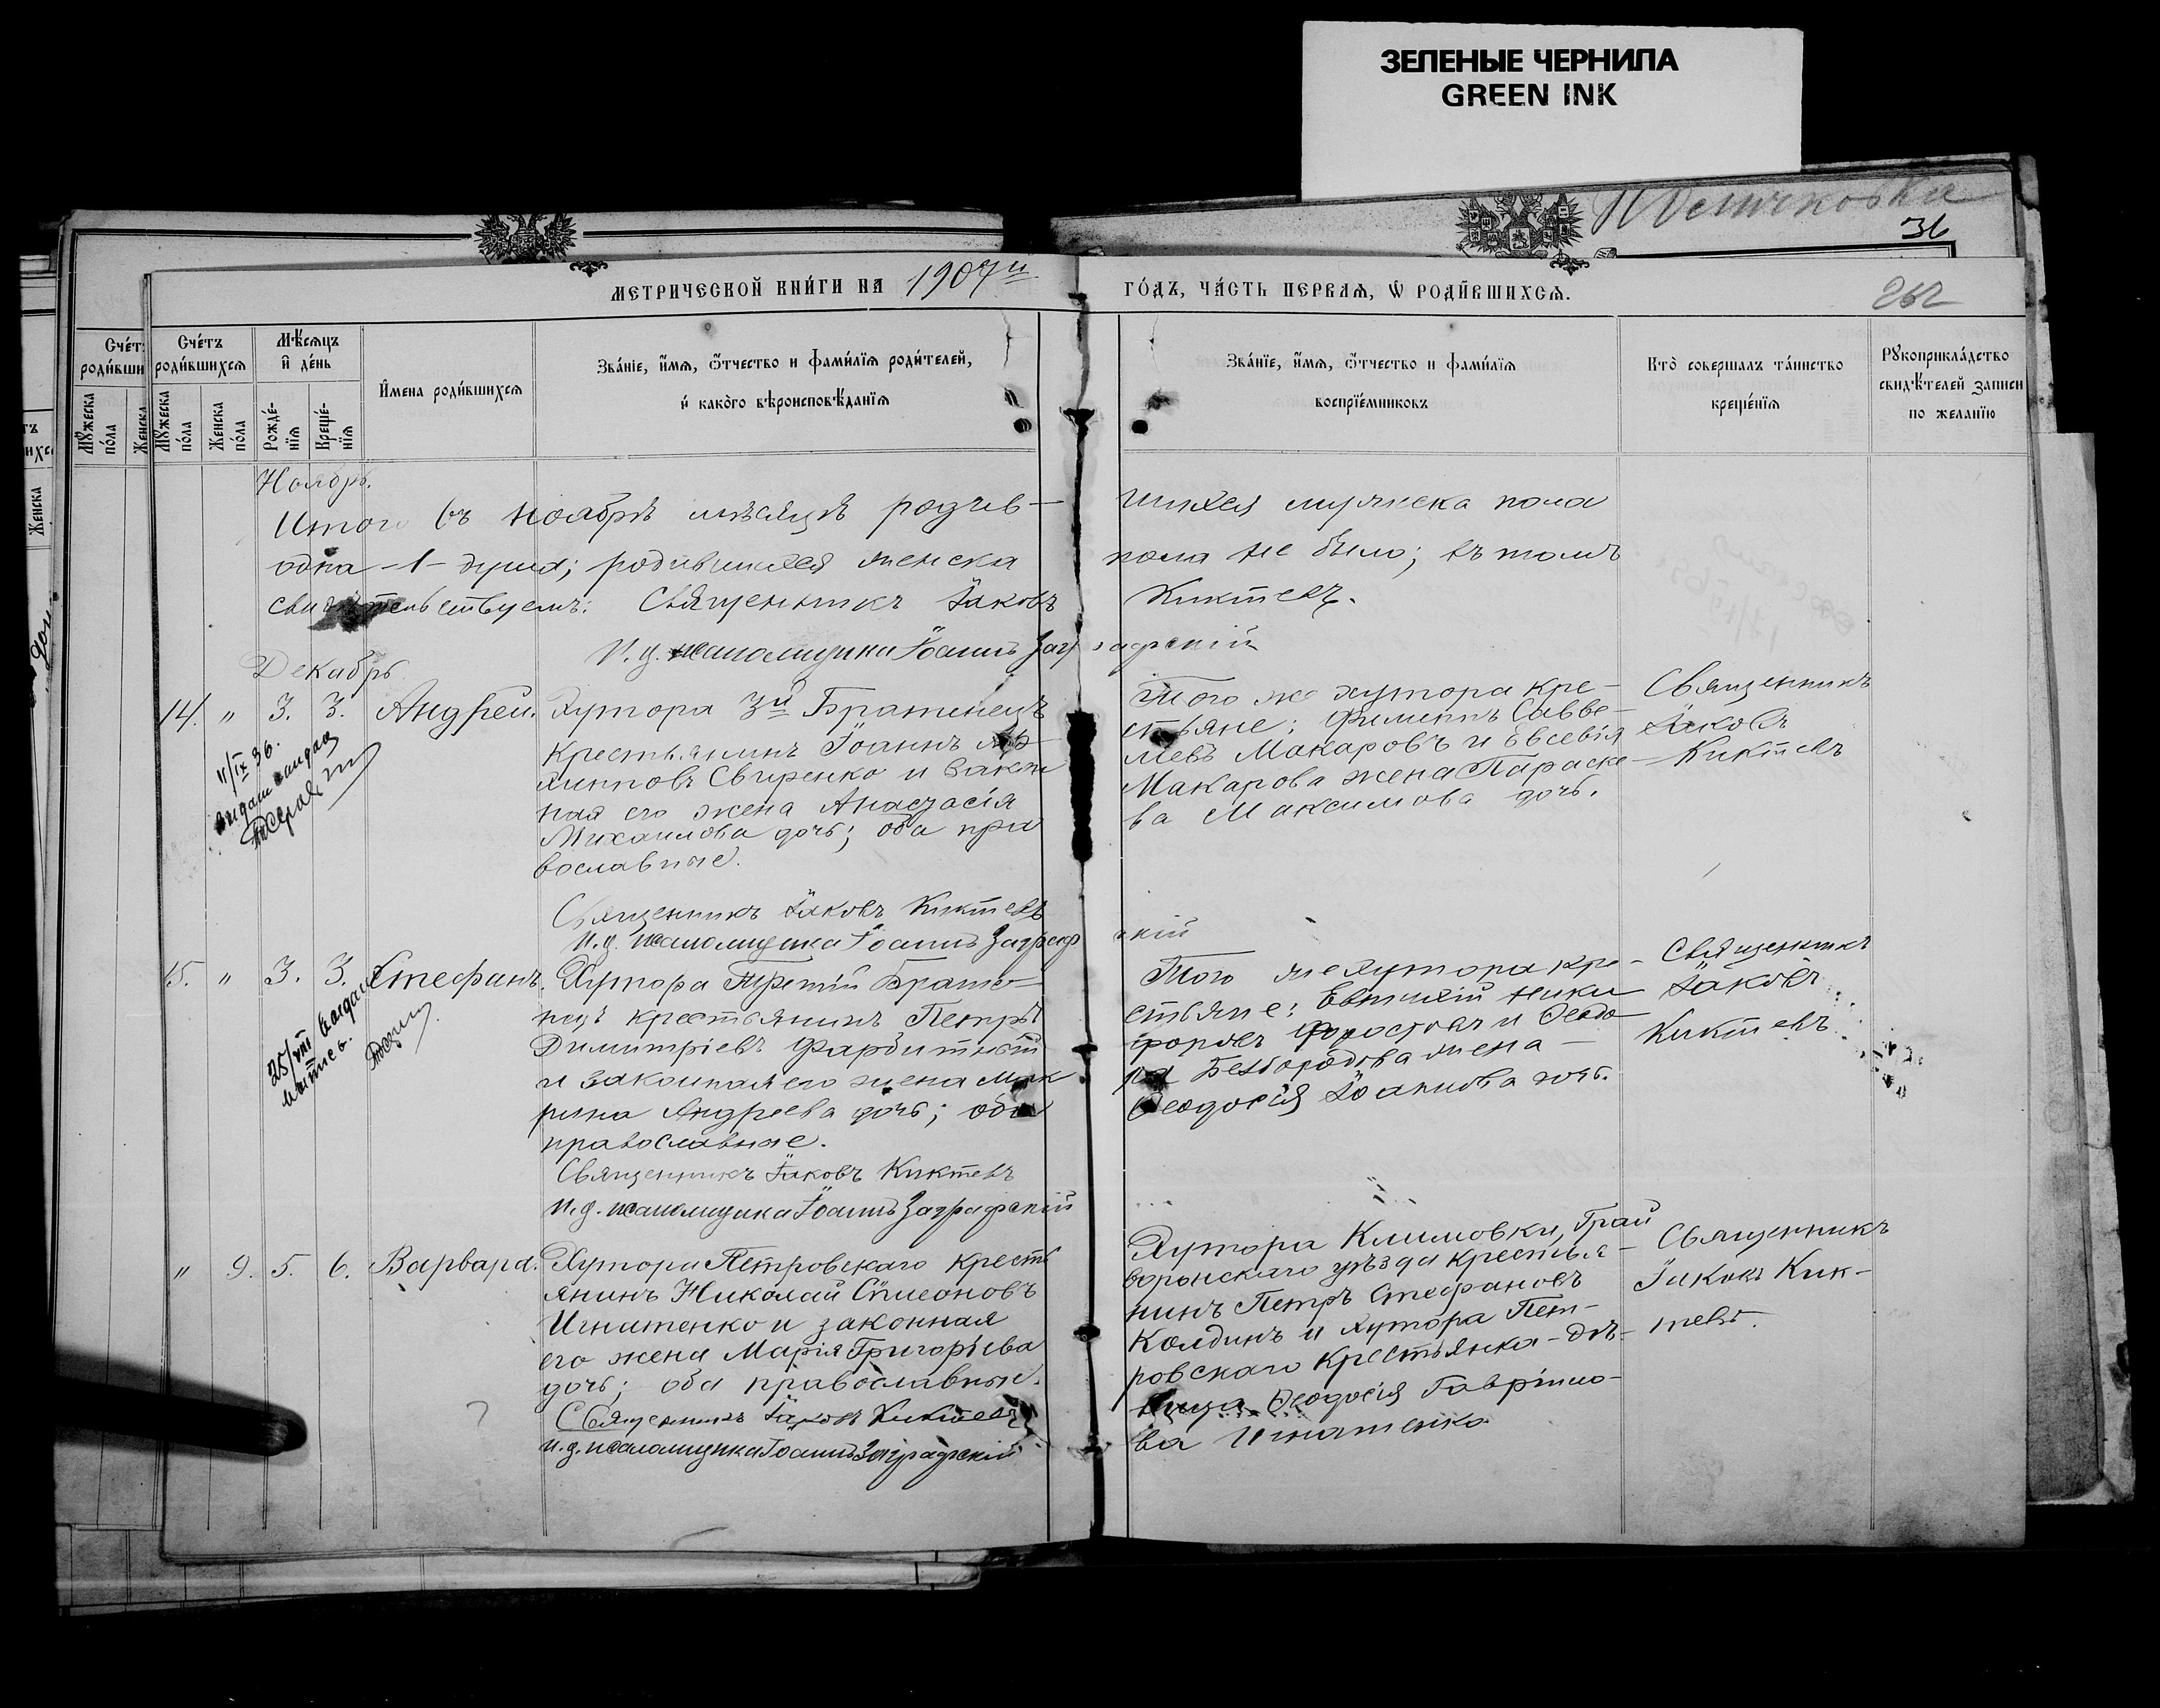 ЗЕЛЕНЫЕ ЧЕРНИЛА
GREEN INK
36
МЕТРИЧЕСКОЙ КНИ́ГИ НА 1907й
ГО́ДЪ, ЧА́СТЬ ПЕРВАѦ, Ѡ РОДИ́ВШИХСѦ.
262
Сче́тъ
роди́вшихсѧ
Мѣ́сѧцъ
и҆ де́нь
Мꙋжеска
по́ла
Женска
по́ла
Рожде́-
нїѧ
Креще́-
нїѧ
И҆мена роди́вшихсѧ
Зва́нїе, и҆́мѧ, ѻ҆́тчество и фами́лїѧ роди́телей,
и҆ како́гѡ вѣроисповѣ́данїѧ
Зва́нїе, и҆́мѧ, ѻ҆́тчество и фами́лїѧ
воспрїе́мниковъ
Кто̀ соверша́лъ та́инство
креще́нїѧ
Рꙋкоприкла́дство
свидѣ́телей записи
по жела́нїю
Ноябрь.
Итого въ ноябрѣ мѣсяцѣ родив-
шихся мужеска пола
одна -1- душа; родившихся женска
пола не было; въ томъ
свидѣтельствуемъ: Священникъ Іаковъ
Киктевъ.
И.д. псаломщика Іоаннъ Заградскій
Декабрь
14. " 3. 3. Андрей.
Хутора 3й Братенецъ
крестьянинъ Іоаннъ
Свиренко и закон
ная его жена Анастасія
Михаилова дочь; оба пра
вославные.
Того же хутора кре-
стьяне: Филиппъ Савве-
льевъ Макаровъ и Евсевія
Макарова жена Параске-
ва Максимова дочь.
Священникъ
Іаковъ
Киктевъ
11/IX 36.
Священникъ Іаковъ Киктевъ
И.д. псаломщика Іоаннъ Заградскій
15. " 3. 3. Стефанъ.
Хутора Третій Брате
нецъ крестьянинъ Петръ
Димитріевъ Фарбитный
и законная его жена Мак
рина Андреева дочь; оба
православные.
Того же хутора кре-
стьяне: Евтихій Ники
форовъ и Ѳеодо
Безбородова жена -
Ѳеодосія Іоаннова дочь.
Священникъ
Іаковъ
Киктевъ
25/VIII
Священникъ Іаковъ Киктевъ
И.д. псаломщика Іоаннъ Заградскій
" 9. 5. 6. Варвара.
Хутора Петровскаго кресть
янинъ Николай Сѷмеоновъ
Игнатенко и законная
его жена Марія Григорьева
дочь; оба православные.
Хутора Климовки, Грай
воронскаго уѣзда крестья-
нинъ Петръ Стефановъ
Колдинъ и хутора Пет-
ровскаго крестьянка-дѣ-
вица Ѳеодосія Гавріило-
ва Игнатенко
Священникъ
Іаковъ Кик-
тевъ.
Священникъ Іаковъ Киктевъ
И.д. псаломщика Іоаннъ Заградскій